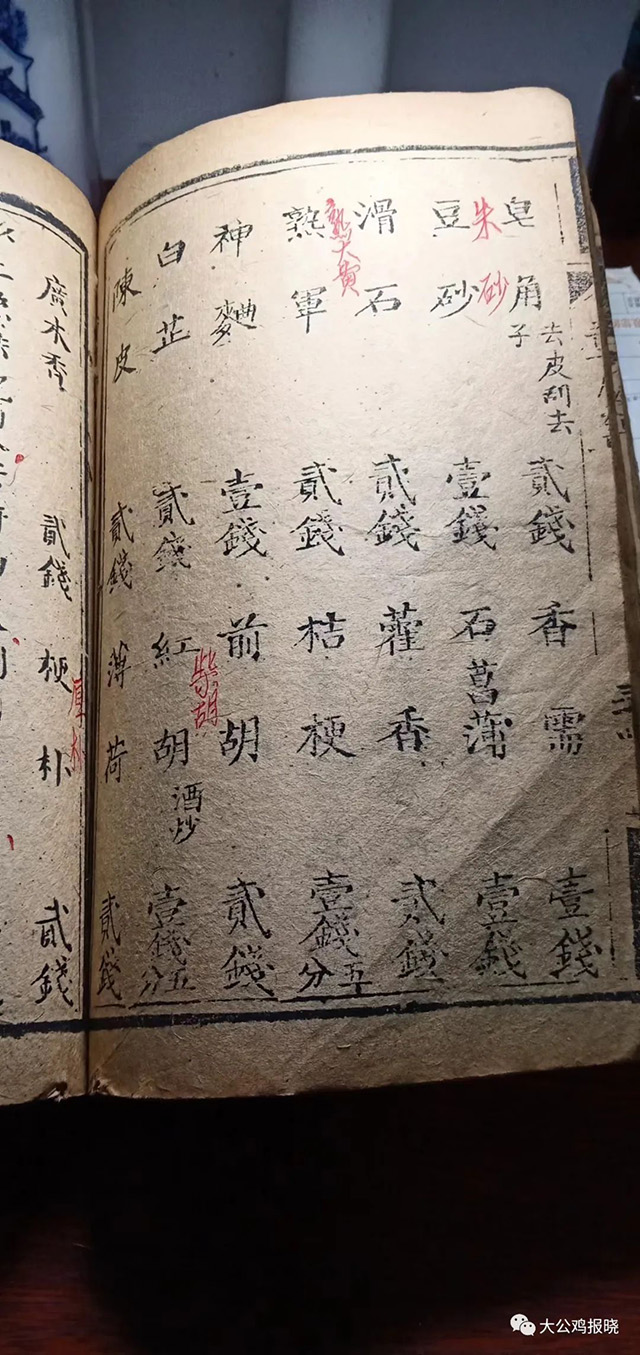 皂角子去皮刮去 貳錢 香需 壹錢
朱砂
豆砂 壹錢 石菖蒲 壹錢
滑石 貳錢 藿香 貳錢
熟大黄
熟軍 貳錢 桔梗 壹錢五分
神麯 壹錢 前胡 貳錢
柴胡
白芷 貳錢 紅胡酒炒 壹錢五分
陳皮 貳錢 薄荷 貳錢
厚朴
廣木香 貳錢 梗朴 貳錢
大公鸡报晓